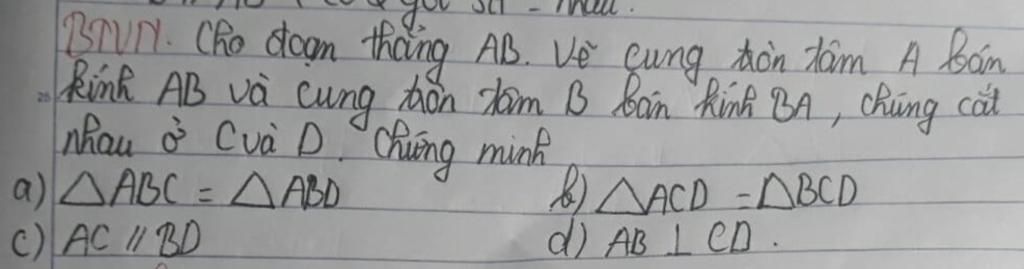 BTVN. Cho đoạn thẳng AB. Vẽ cung tròn tâm A bán
kính AB và cung tròn tâm B bán kính BA, chúng cắt
nhau ở C và D. Chứng minh
a) △ABC = △ABD b) △ACD = △BCD
c) AC // BD d) AB ⊥ CD.